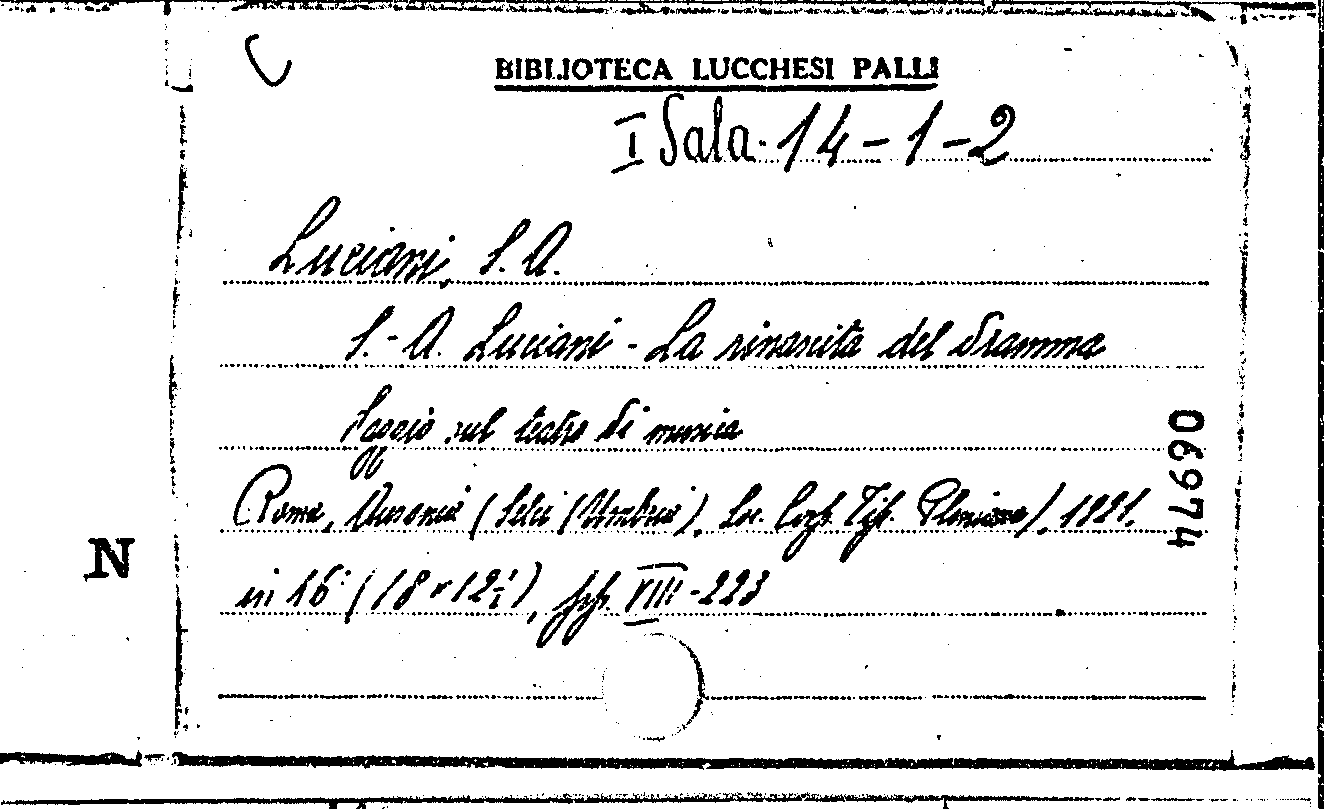 BIBLIOTECA LUCCHESI PALLI
I Sala. 14-1-2
Luciani, S. A.
S.-A. Luciani - La rinascita del dramma
Saggio sul teatro di musica
Roma, Ausonia (Selci (Umbria), Soc. Tip. Pliniana), 1921.
in 16° (18 x 12½), pp. VIII-223
06974
N